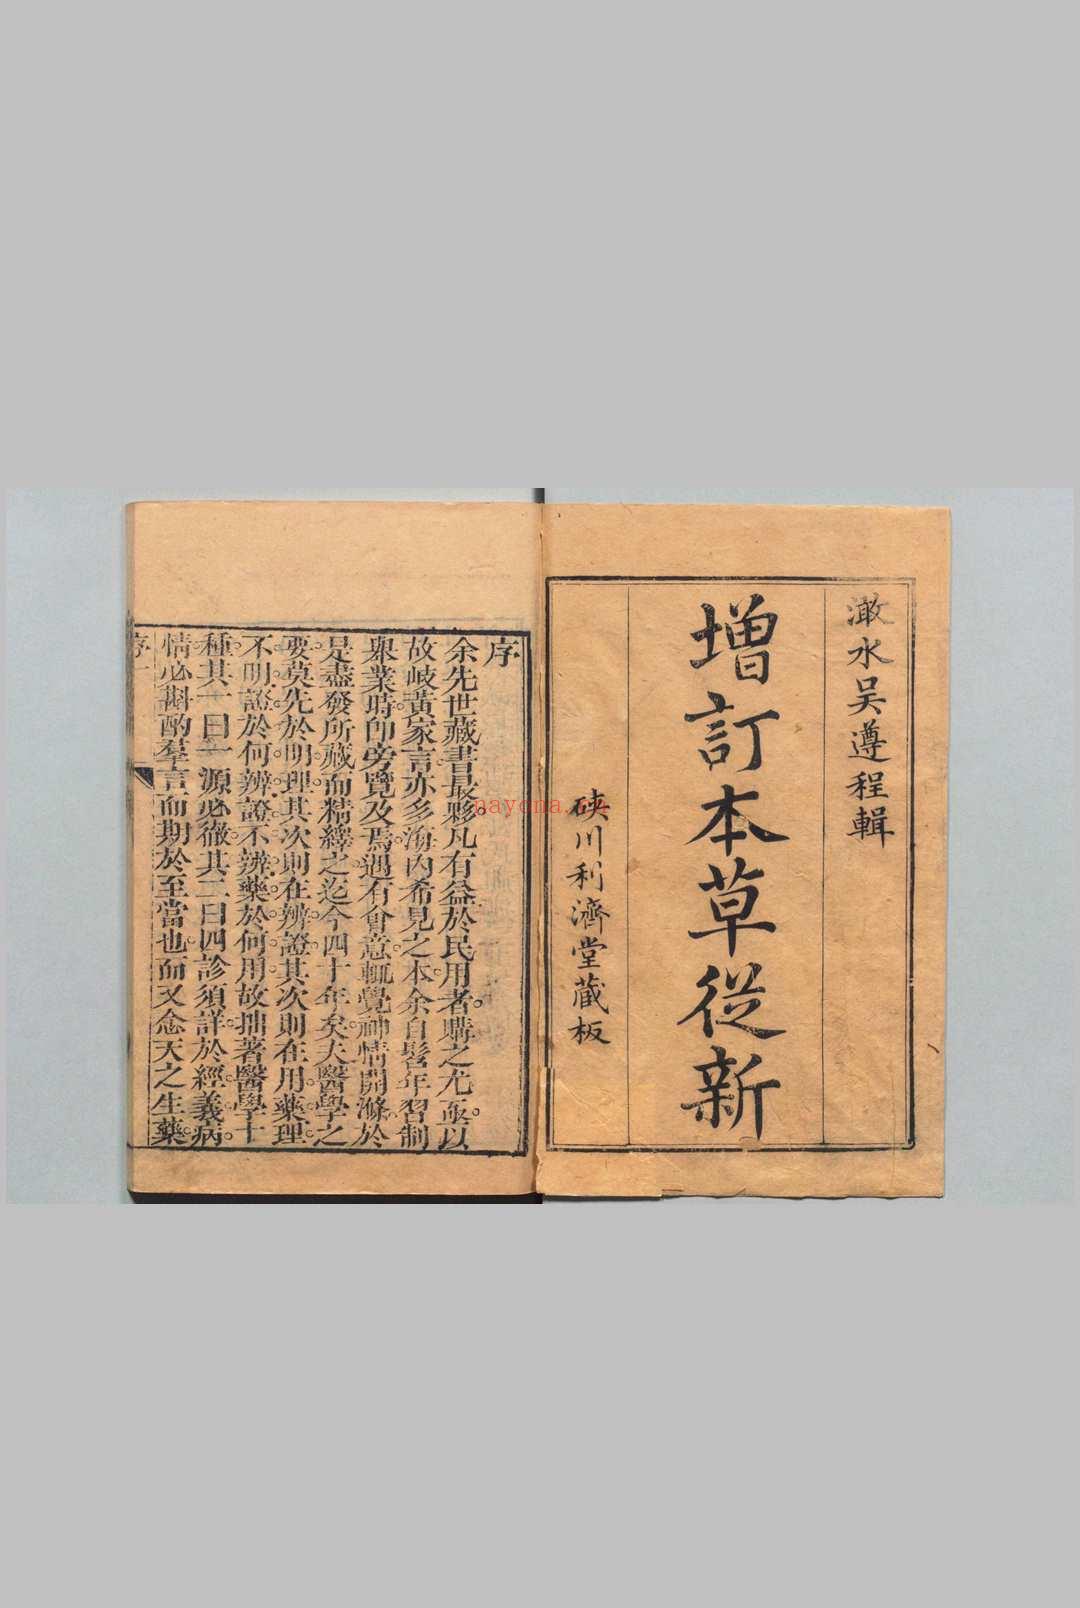 澉水吴遵程輯
增訂本草從新
硤川利濟堂藏板
序
余先世藏書最夥凡有益於民用者購之尤亟以
故岐黃家言亦多海內希見之本余自髫年習制
舉業時卽旁覽及焉遇有會意輒覺神情開滌於
是盡發所藏而精繹之迄今四十年矣夫醫學之
要莫先於明理其次則在辨證其次則在用藥理
不明證於何辨證不辨藥於何用故拙著醫學十
種其一曰一源必徹其二曰四診須詳於經義病
情必斟酌羣言而期於至當也而又念天之生藥
序一
nayona.cn